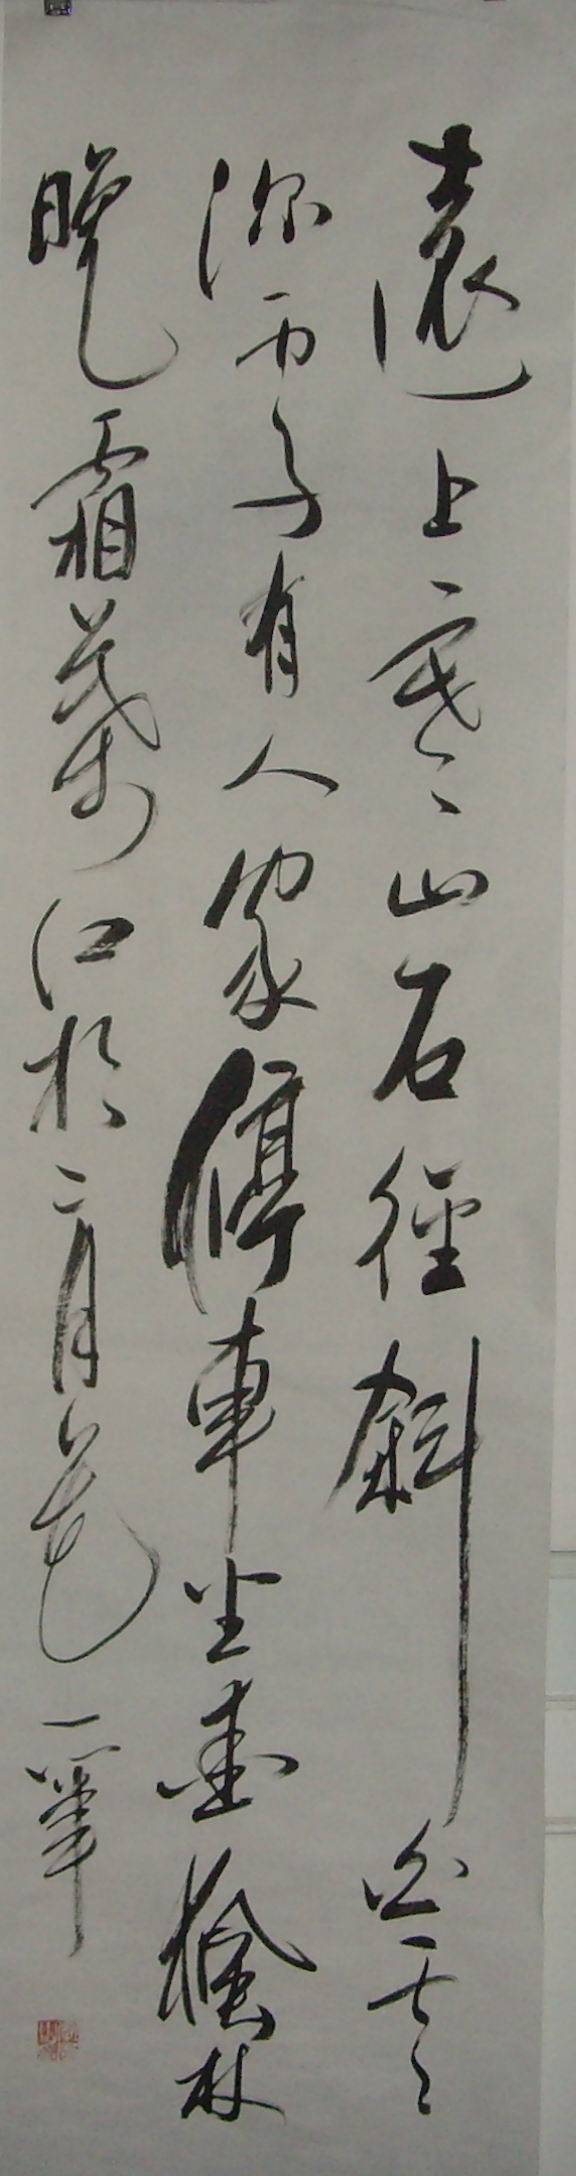 遠上寒山石徑斜白雲
深處有人家停車坐愛楓林
晚霜葉紅於二月花